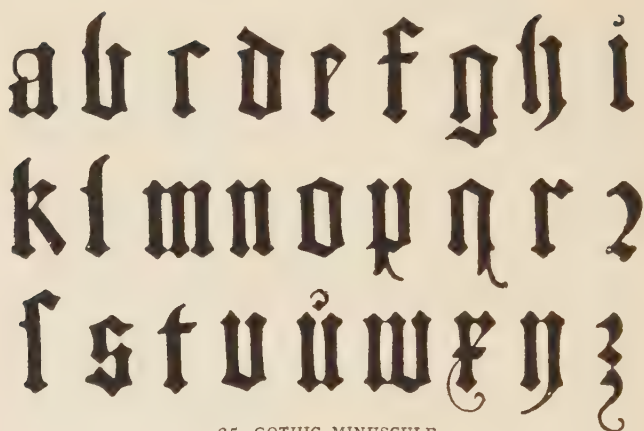 a b c d e f g h i
k l m n o p q r ꝛ
ſ s t v ů w x y z
25. GOTHIC MINUSCULE